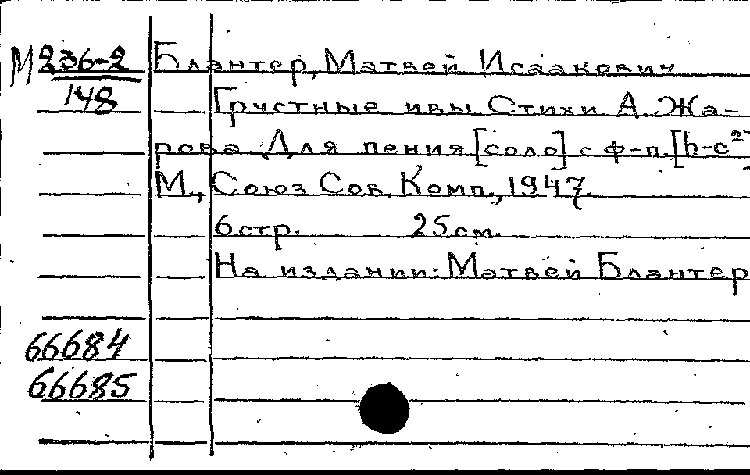 М 236-2 Блантер, Матвей Исаакович
148 Грустные ивы Стихи А. Жа-
рова Для пения [соло] с ф-п. [h-c²]
М., Союз Сов. Комп., 1947.
6 стр. 25 см.
На издании: Матвей Блантер
66684
66685